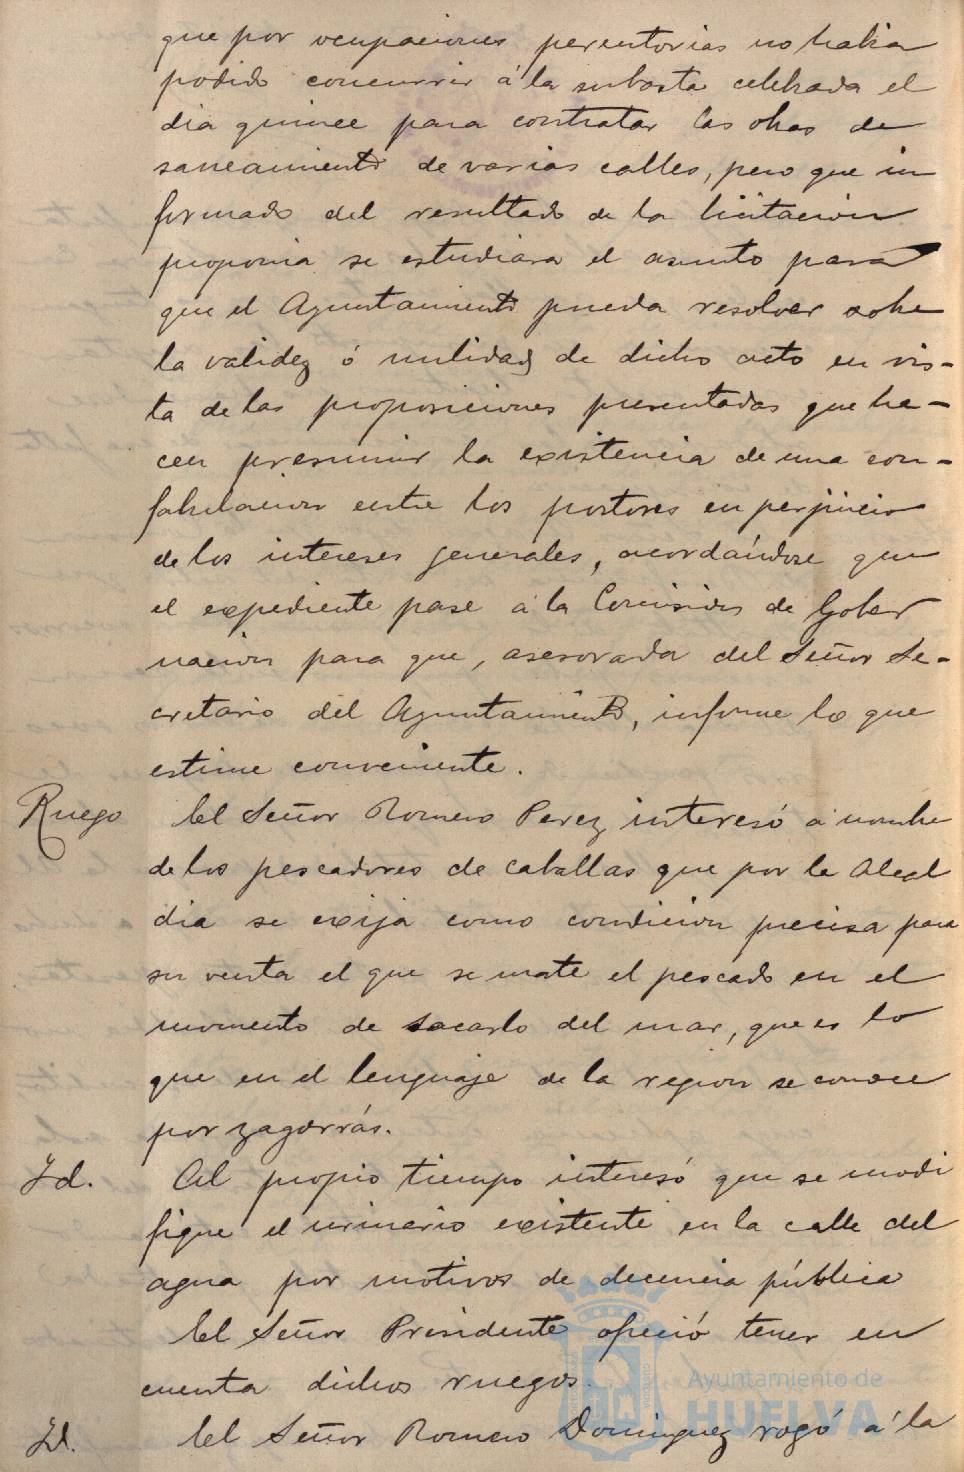 que por ocupaciones perentorias no habia
podido concurrir á la subasta celebrada el
dia quince para contratar las obras de
saneamiento de varias calles, pero que in
formado del resultado de la licitacion
proponia se estudiara el asunto para
que el Ayuntamiento pueda resolver sobre
la validez ó nulidad de dicho acto en vis-
ta de las proposiciones presentadas que ha-
cen presumir la existencia de una con-
fabulacion entre los postores en perjuicio
de los intereses generales, acordándose que
el expediente pase á la Comision de Gober
nacion para que, asesorada del Señor Se-
cretario del Ayuntamiento, informe lo que
estime conveniente.
Ruego El Señor Romero Perez interesó á nombre
de los pescadores de caballas que por la Alcal
dia se exija como condicion precisa para
su venta el que se mate el pescado en el
momento de sacarlo del mar, que es lo
que en el lenguaje de la region se conoce
por zagarrás.
Id. Al propio tiempo interesó que se modi
fique el urinario existente en la calle del
agua por motivos de decencia pública
El Señor Presidente ofreció tener en
cuenta dichos ruegos.
Id. El Señor Romero Dominguez rogó á la
Ayuntamiento de
HUELVA